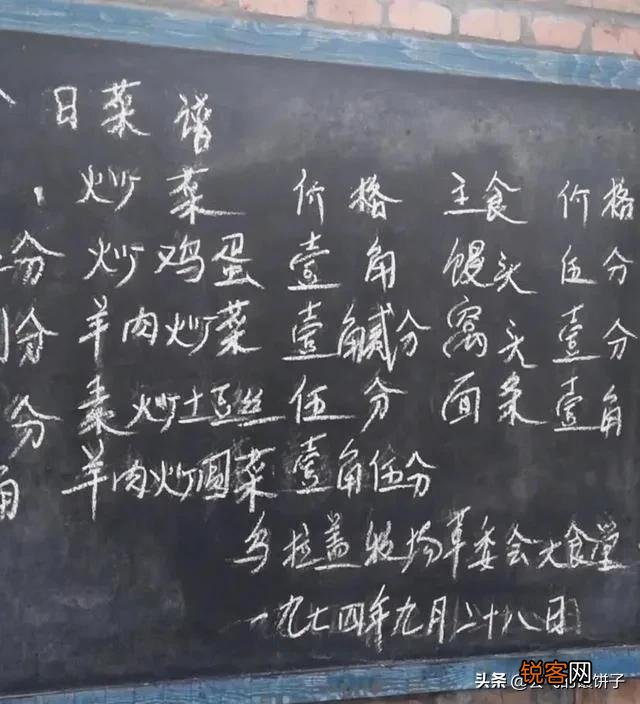 日菜谱
炒菜 价格 主食 价格
分 炒鸡蛋 壹角 馒头 伍分
分 羊肉炒菜 壹角贰分 窝头 壹分
分 素炒土豆丝 伍分 面条 壹角
角 羊肉炒圆菜 壹角伍分
乌拉盖牧场革委会大食堂
一九七四年九月二十八日
锐客网
头条 @
饼子